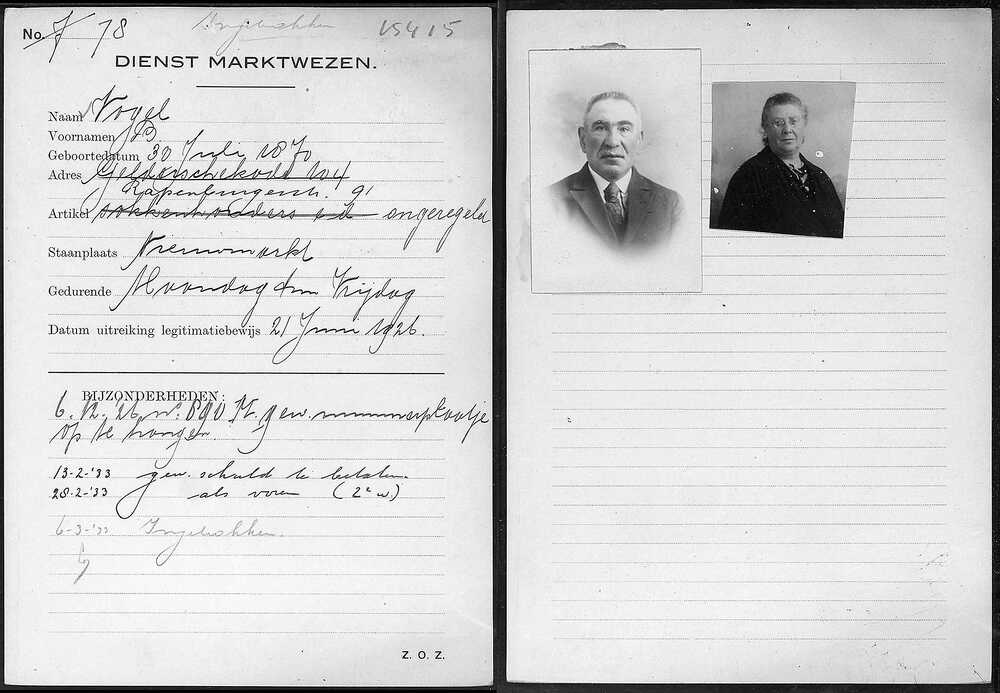 No. 78 Ingetrokken 15415
DIENST MARKTWEZEN.
Naam Vogel
Voornamen B
Geboortedatum 30 Juli 1870
Adres Gelderschekade 104
Rapenburgerstr. 91
Artikel ongeregeld
Staanplaats Nieuwmarkt
Gedurende Maandag t/m Vrijdag
Datum uitreiking legitimatiebewijs 21 Juni 1926.
BIJZONDERHEDEN:
6.12.'26 no. 890 M. gew. nummerplaatje
op te hangen.
13-2-'33 gew. schuld te betalen.
28-2-'33 als voren (2e w.)
6-3-'33 Ingetrokken.
Z. O. Z.